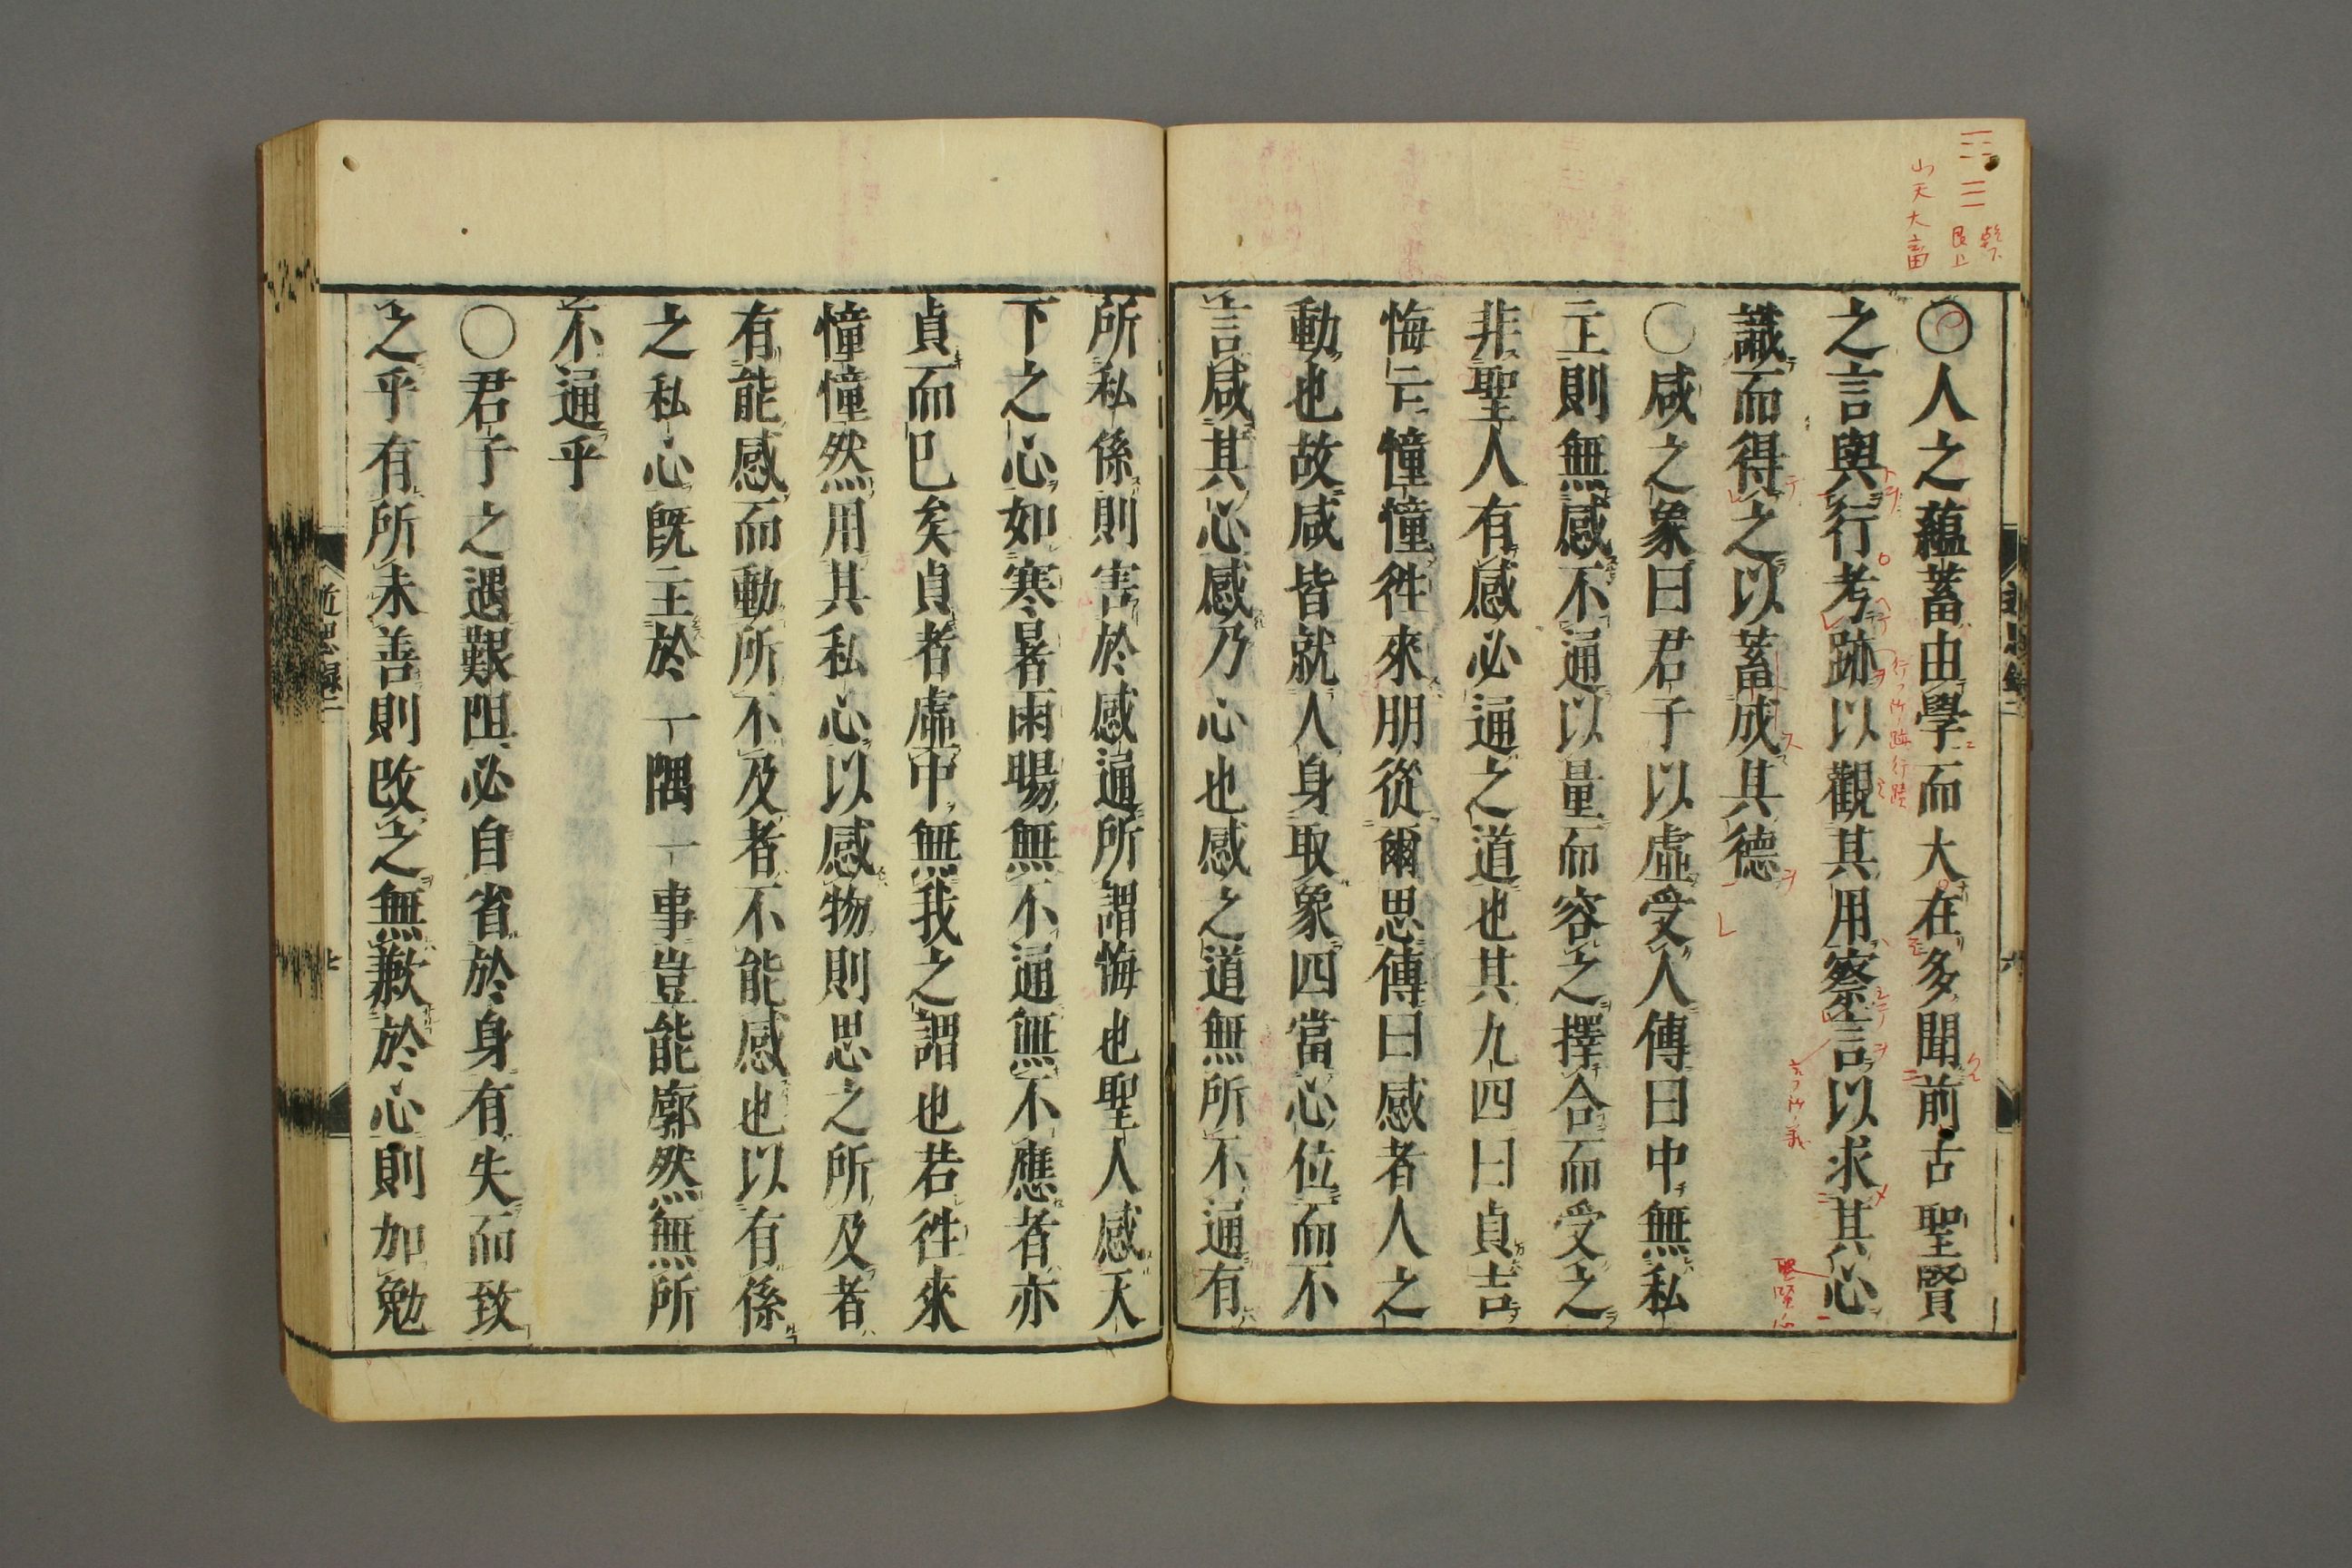 山天大畜
艮上
乾下
〇人之蘊蓄由學而大在多聞前古聖賢
之言與行考跡以觀其用察言以求其心
識而得之以蓄成其德
〇咸之象曰君子以虛受人傳曰中無私
主則無感不通以量而容之擇合而受之
非聖人有感必通之道也其九四曰貞吉
悔亡憧憧徃來朋從爾思傳曰感者人之
動也故咸皆就人身取象四當心位而不
言咸其心感乃心也感之道無所不通有
所私係則害於感通所謂悔也聖人感天
下之心如寒暑雨暘無不通無不應者亦
貞而已矣貞者虛中無我之謂也若徃來
憧憧然用其私心以感物則思之所及者
有能感而動所不及者不能感也以有係
之私心既主於一隅一事豈能廓然無所
不通乎
〇君子之遇艱阻必自省於身有失而致
之乎有所未善則改之無歉於心則加勉
近思錄二
七